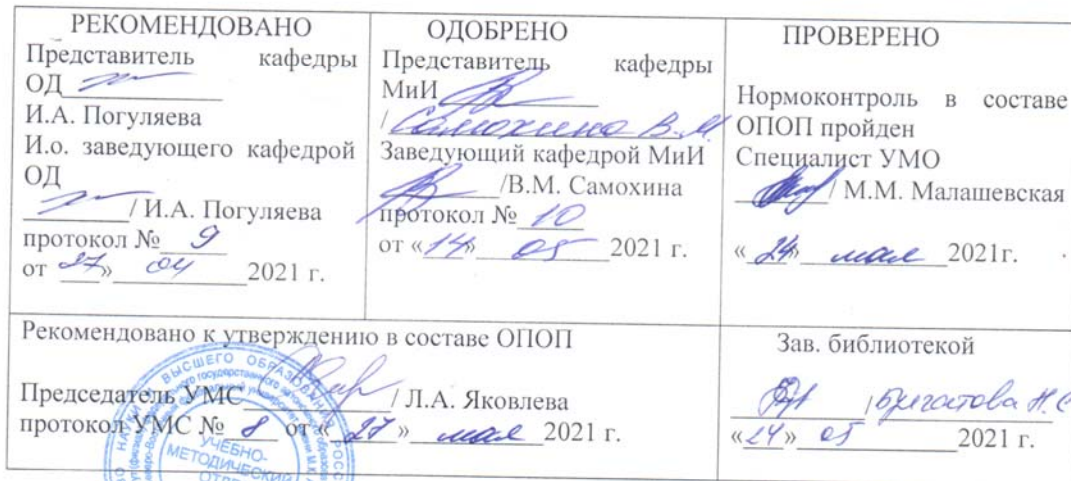 РЕКОМЕНДОВАНО
Представитель кафедры
ОД
И.А. Погуляева
И.о. заведующего кафедрой
ОД
/ И.А. Погуляева
протокол № 9
от 27» 04 2021 г.
ОДОБРЕНО
Представитель кафедры
МиИ
/ Самохина В.М
Заведующий кафедрой МиИ
/В.М. Самохина
протокол № 10
от «14» 05 2021 г.
ПРОВЕРЕНО
Нормоконтроль в составе
ОПОП пройден
Специалист УМО
/ М.М. Малашевская
«24» мая 2021г.
Рекомендовано к утверждению в составе ОПОП
Председатель УМС / Л.А. Яковлева
протокол УМС № 8 от «27» мая 2021 г.
Зав. библиотекой
/
«24» 05 2021 г.
ВЫСШЕГО ОБРАЗОВАНИЯ
УЧЕБНО-
МЕТОДИЧЕСКИЙ